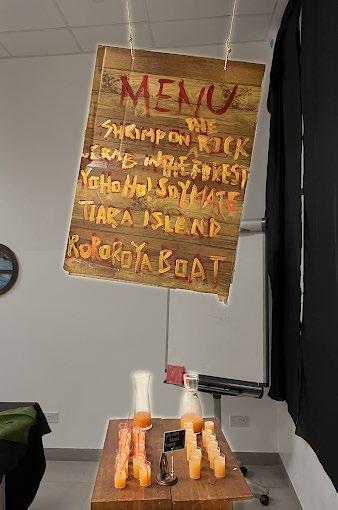 MENU
SHRIMP ON THE ROCK
CRAB IN THE FOREST
YOHOHO! SOYMATE
TIARA ISLAND
ROROROYA BOAT